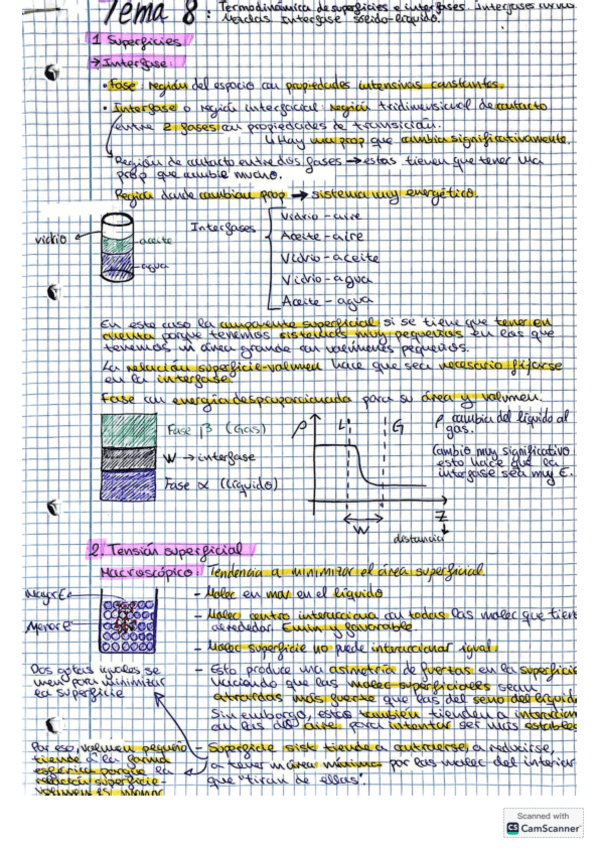 Tema 8: Termodinámica de superficies e interfases. Interfases curvas
Mezclas Interfase sólido-líquido.
1 Superficies
→ Interfase:
• Fase: región del espacio con propiedades intensivas constantes.
• Interfase o región interfacial: región tridimensional de contacto
entre 2 fases con propiedades de transición.
↳ Hay una prop que cambia significativamente.
Región de contacto entre dos fases → estas tienen que tener una
prop que cambie mucho.
Región donde cambian prop → sistema muy energético.
vidrio
aceite
agua
Interfases
Vidrio - aire
Aceite - aire
Vidrio - aceite
Vidrio - agua
Aceite - agua
En este caso la componente superficial si se tiene que tener en
cuenta porque tenemos sistemas muy pequeños en los que
tenemos un área grande con volúmenes pequeños.
La relación superficie-volumen hace que sea necesario fijarse
en la interfase.
Fase con energía desproporcionada para su área y volumen.
Fase β (Gas)
W → interfase
Fase α (Líquido)
ρ
L
G
W
Z
distancia
ρ cambia del líquido al
gas.
Cambio muy significativo
esto hace que la
interfase sea muy E.
2. Tensión superficial
Macroscópico: Tendencia a minimizar el área superficial.
Mayor E
Menor E
- Molec en mov en el líquido
- Molec centro interacciona con todas las molec que tiene
alrededor. E min y favorable.
- Molec superficie no puede interaccionar igual.
Dos gotas iguales se
unen para minimizar
la superficie
- Esto produce una asimetría de fuerzas en la superficie
haciendo que las molec superficiales sean
atraídas más fuerte que las del seno del líquido
Sin embargo, estas también tienden a interaccionar
con las del aire para intentar ser más estables
Por eso, volumen pequeño
tiende a la forma
esférica porque la
relación superficie-
volumen es menor
- Superficie sist tiende a contraerse, a reducirse,
a tener un área mínima por las molec del interior
que "tiran de ellas".
Scanned with
CS CamScanner